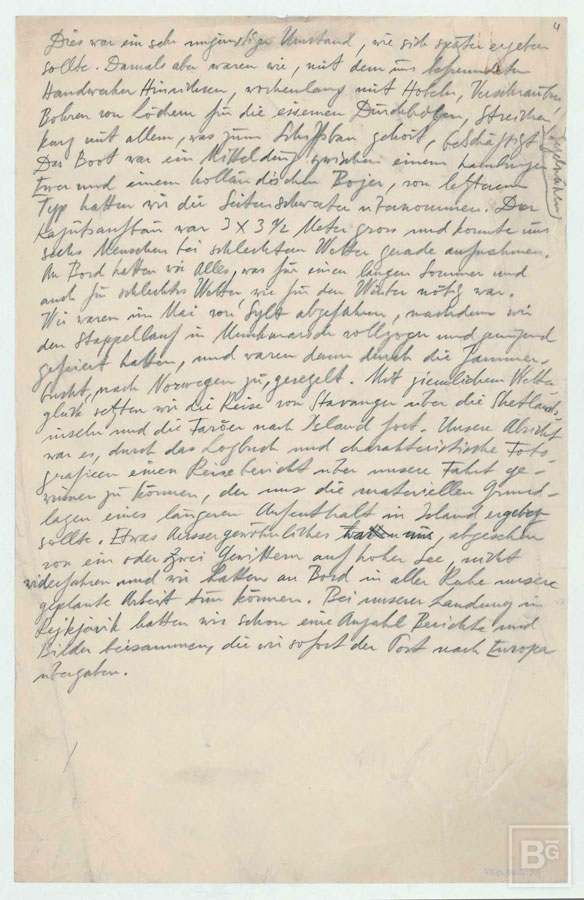 4
Dies war ein sehr ungünstiger Umstand, wie sich später ergeben
sollte. Damals aber waren wir, mit dem uns befreundeten
Handwerker Hinrichsen, wochenlang mit Hobeln, Verschrauben,
Bohren von Löchern für die eisernen Durchbolzen, Streichen,
Segelnähen
kurz mit allem, was zum Schiffsbau gehört, beschäftigt.
Das Boot war ein Mittelding zwischen einem Hamburger
Ewer und einem holländischen Bojer, von letzterem
Typ hatten wir die Seitenschwerter übernommen. Der
Kajütsaufbau war 3 X 3 1/2 Meter gross und konnte uns
sechs Menschen bei schlechtem Wetter gerade aufnehmen.
An Bord hatten wir Alles, was für einen langen Sommer und
auch für schlechtes Wetter wie für den Winter nötig war.
Wir waren im Mai von Sylt abgefahren, nachdem wir
den Stappellauf in Munkmarsch vollzogen und genügend
gefeiert hatten, und waren dann durch die Jammer-
bucht, nach Norwegen zu, gesegelt. Mit ziemlichem Wetter-
glück setzten wir die Reise von Stavanger über die Shetlands-
inseln und die Faröer nach Island fort. Unsere Absicht
war es, durch das Logbuch und charakteristische Foto-
grafieen einen Reisebericht über unsere Fahrt ge-
winnen zu können, der uns die materiellen Grund-
lagen eines längeren Aufenthalt in Island ergeben
sollte. Etwas Aussergewöhnliches war uns, abgesehen
von ein oder zwei Gewittern auf hoher See, nicht
widerfahren und wir hatten an Bord in aller Ruhe unsere
geplante Arbeit tun können. Bei unserer Landung in
Rejkjavik hatten wir schon eine Anzahl Berichte und
Bilder beisammen, die wir sofort der Post nach Europa
übergaben.
BG